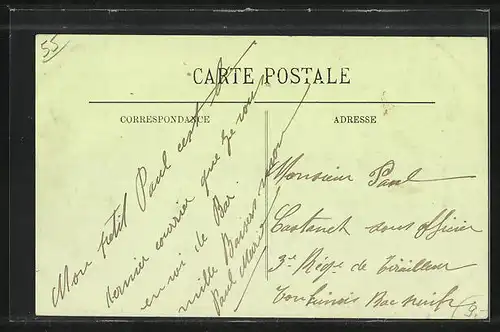 55
CARTE POSTALE
CORRESPONDANCE
ADRESSE
Mon petit Paul c'est le
dernier courrier que je vous
envoi de Bar.
mille Baisers
Paul
Monsieur Paul
Castanet sous officier
3e Régt de Tirailleur
Tonkinois Bac ninh
9.-